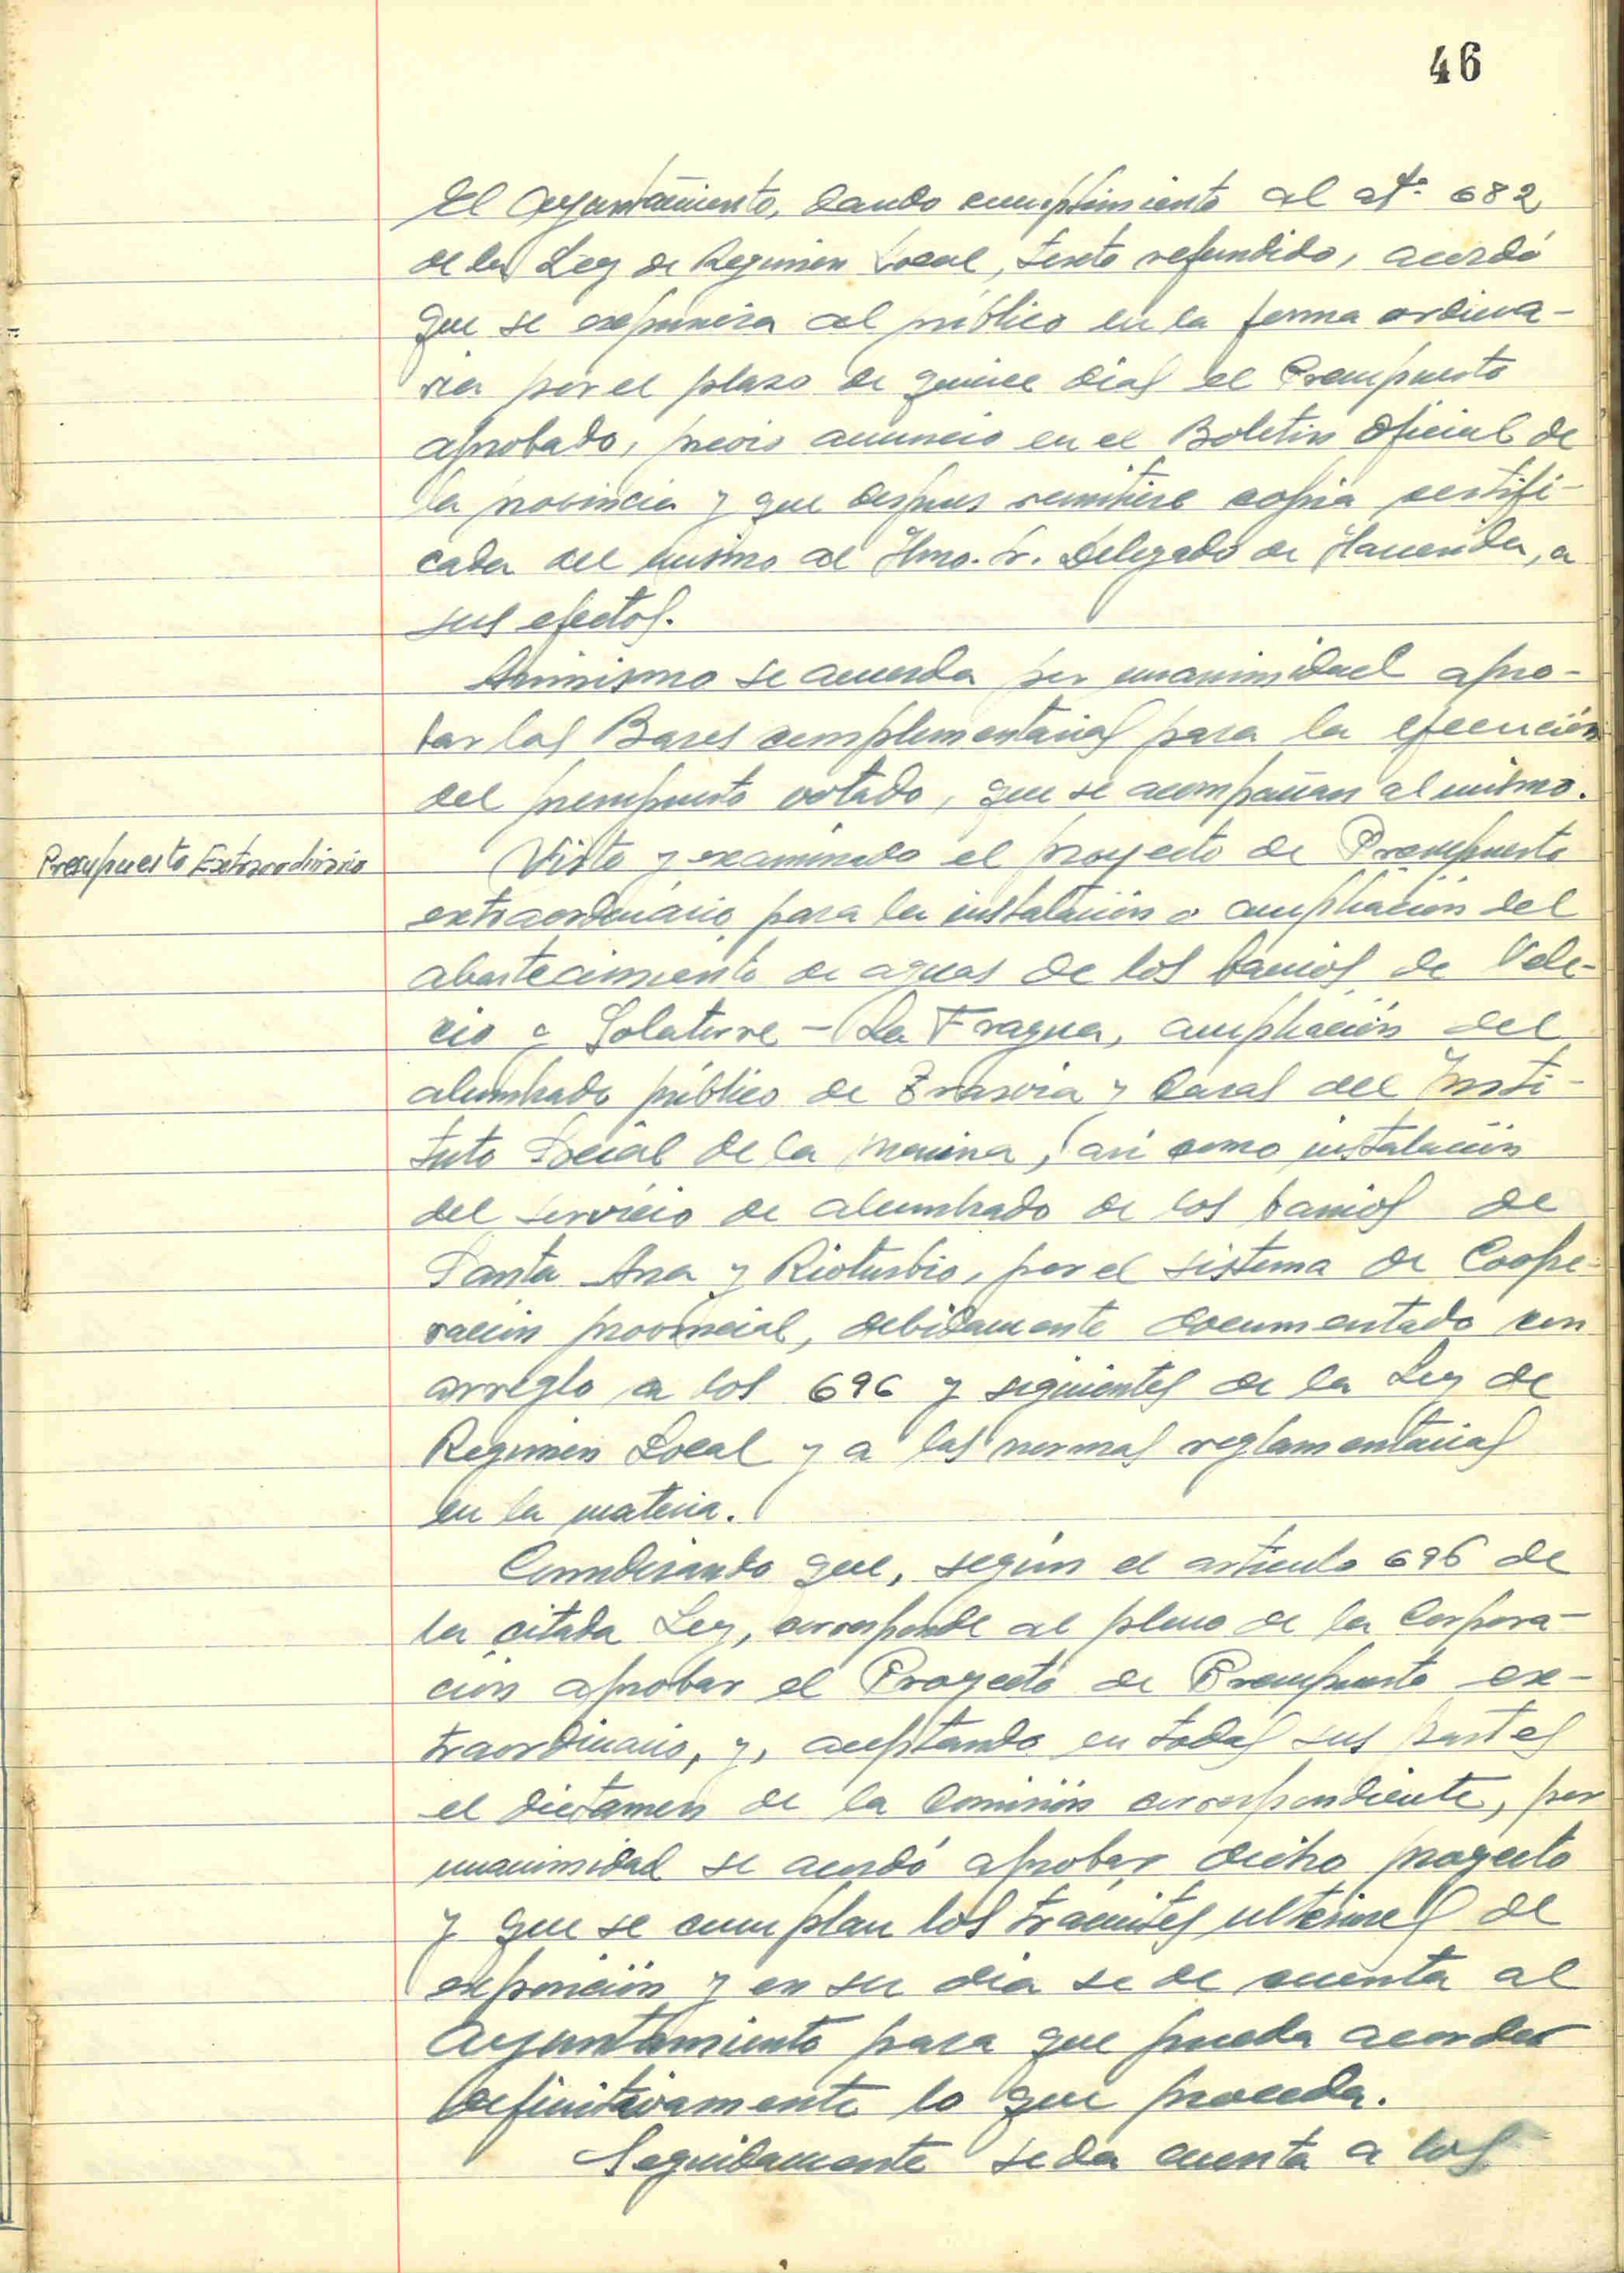 46
El Ayuntamiento, dando cumplimiento al atº 682
de la Ley de Regimen Local, texto refundido, acordó
que se expusiera al público en la forma ordina-
ria por el plazo de quince dias el Presupuesto
aprobado, previo anuncio en el Boletin Oficial de
la provincia y que despues remitiese copia certifi-
cada del mismo al Ilmo. Sr. Delegado de Hacienda, a
sus efectos.
Asimismo se acuerda por unanimidad apro-
bar las Bases complementarias para la ejecución
del presupuesto votado, que se acompañan al mismo.
Presupuesto Extraordinario
Visto y examinado el proyecto de Presupuesto
extraordinario para la instalación o ampliación del
abastecimiento de aguas de los barrios de Vale-
rio y Solatorre - La Fragua, ampliación del
alumbrado público de Trasvia y Casas del Insti-
tuto Social de la Marina, asi como instalación
del servicio de alumbrado de los barrios de
Santa Ana y Rioturbio, por el sistema de Coope-
ración provincial, debidamente documentado con
arreglo a los 696 y siguientes de la Ley de
Regimen Local y a las normas reglamentarias
en la materia.
Considerando que, según el artículo 696 de
la citada Ley, corresponde al pleno de la Corpora-
ción aprobar el Proyecto de Presupuesto ex-
traordinario, y, aceptando en todas sus partes
el dictamen de la Comisión correspondiente, por
unanimidad se acordó aprobar dicho proyecto
y que se cumplan los trámites ulteriores de
exposición y en su dia se de cuenta al
Ayuntamiento para que pueda acordar
definitivamente lo que proceda.
Seguidamente se da cuenta a los